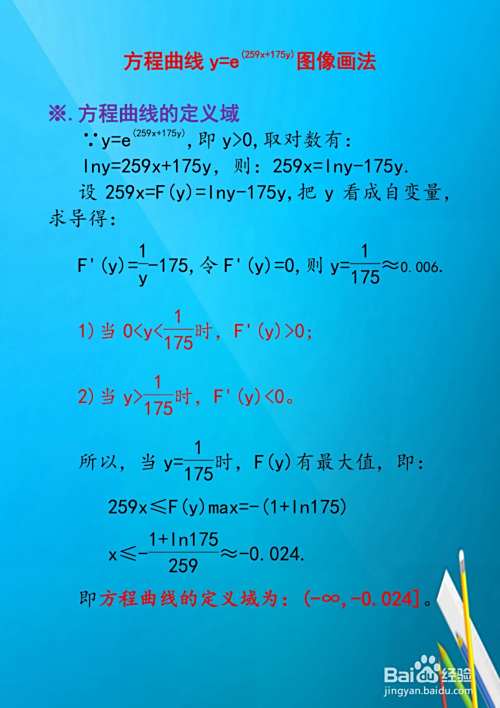 方程曲线y=e^(259x+175y)图像画法
※.方程曲线的定义域
∵y=e^(259x+175y),即y>0,取对数有:
lny=259x+175y, 则: 259x=lny-175y.
设 259x=F(y)=lny-175y,把 y 看成自变量,
求导得:
F'(y)=1/y-175,令F'(y)=0,则y=1/175≈0.006.
1)当 0<y<1/175时, F'(y)>0;
2)当 y>1/175时, F'(y)<0。
所以, 当 y=1/175时, F(y)有最大值, 即:
259x≤F(y)max=-(1+ln175)
x≤-(1+ln175)/259≈-0.024.
即方程曲线的定义域为: (-∞,-0.024]。
Baidu经验
jingyan.baidu.com